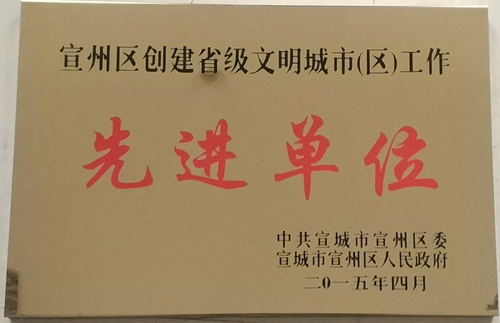 宣州区创建省级文明城市(区)工作
先进单位
中共宣城市宣州区委
宣城市宣州区人民政府
二0一五年四月